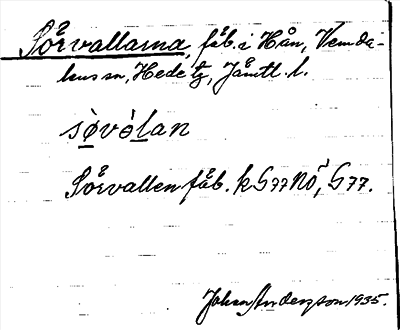 Sörvallarna, fäb. i Hån, Vemda-
lens sn, Hede tg, Jämtl. l.
sø̀vəlan
Sörvallen fäb. k G77NÖ, G77.
Johan Anderzson 1935.